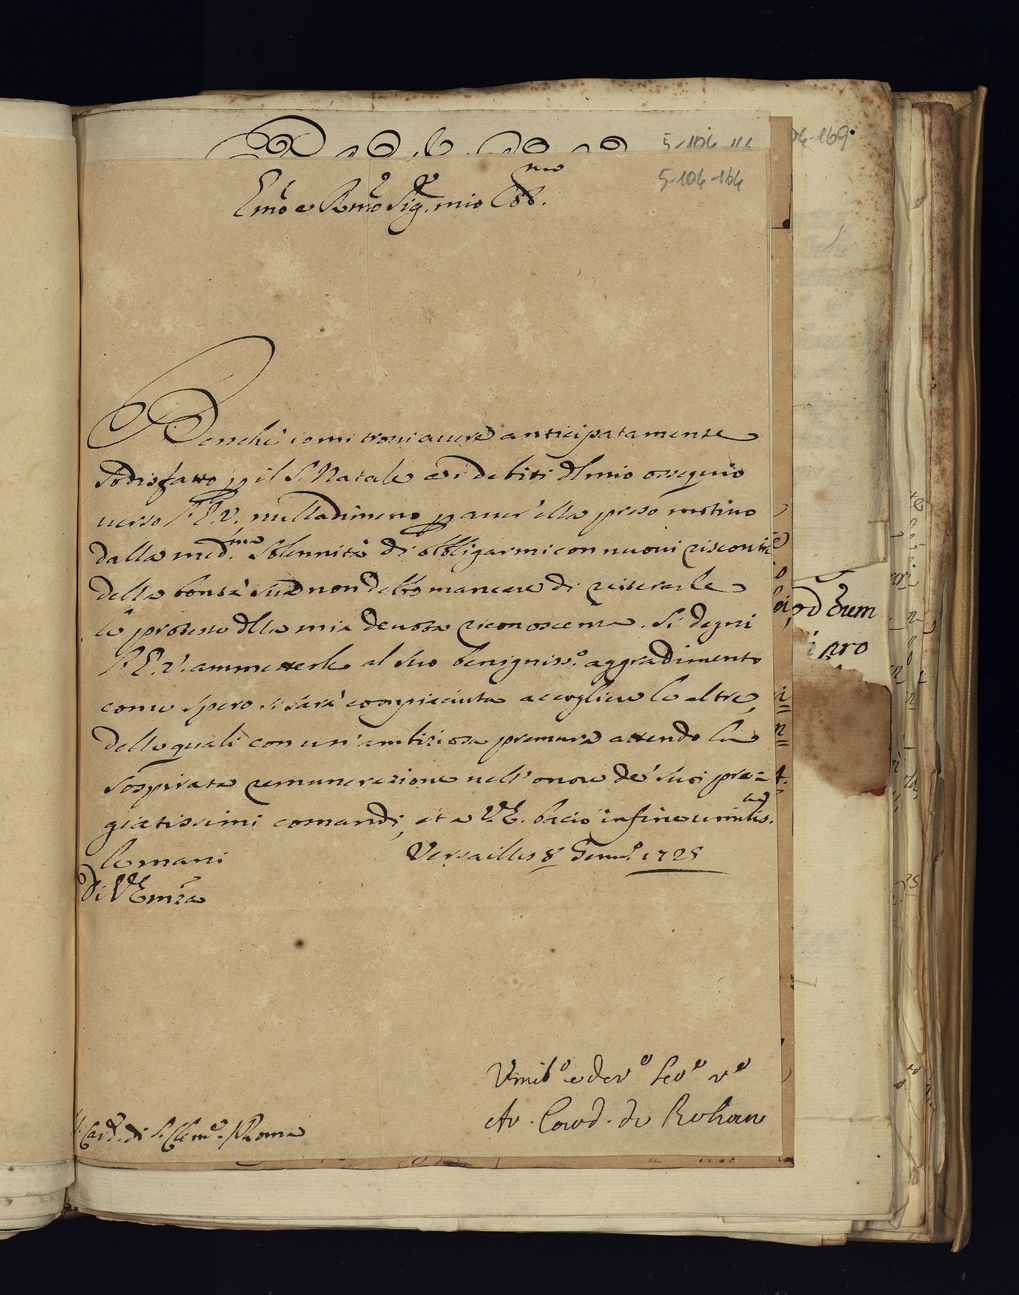 5-104-164
Em̃o e Rm̃o Sig.r mio Oss.mo
Benche io mi trovi avere anticipatamente
sodisfatto p il S. Natale ai debiti del mio ossequio
verso l'E.V. nulladimeno p aver'ella preso motivo
dalla med.ma solennità di obbligarmi con nuovi riscontri
della bontà sua non debbo mancare di reiterarle
le proteste della mia devota riconoscenza. Si degni
l'E.V. ammetterle al suo benigniss.o aggradimento
come spero si sarà compiaciuta accogliere le altre,
delle quali con un'ambiziosa premura attendo la
sospirata remunerazione nell'onore de' suoi pre=
giatissimi comandi, et a V.E. bacio infine umilis.te
le mani
Versailles 8 Genn.o 1725
Di V. Emza
Umil.o e dev.o Ser.e v.o
Ar. Card. de Rohan
Card. di S. Clem.e Roma
od Eum
pro